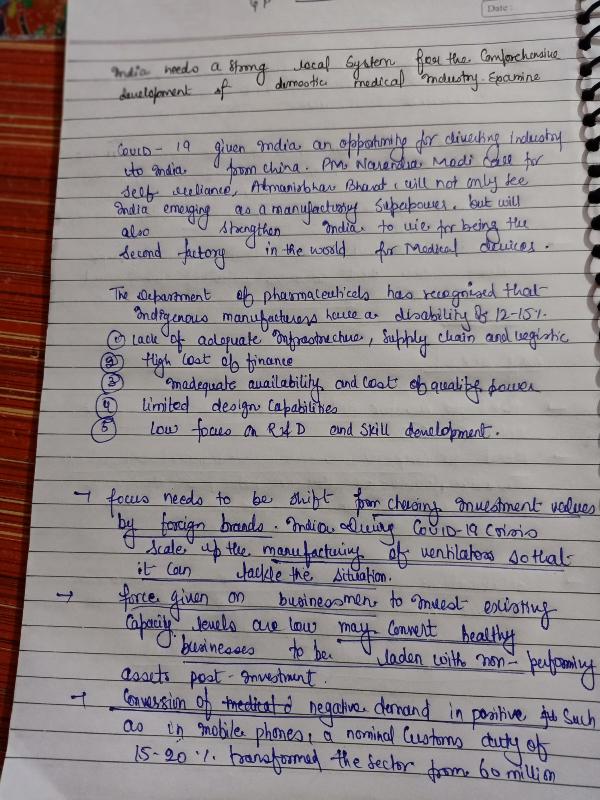 Date :
India needs a strong local System for the Comprehensive
development of domestic medical Industry. Examine
COVID-19 given India an opportunity for diverting Industry
to India from China. PM Narendra Modi Call for
self reliance, Atmanirbhar Bharat, will not only see
India emerging as a manufacturing Superpower, but will
also strengthen India to vie for being the
second factory in the world for Medical devices.
The Department of pharmaceuticals has recognised that
Indigenous manufacturers have a disability of 12-15%.
① Lack of adequate Infrastructure, Supply chain and Logistic
② High Cost of finance
③ Inadequate availability and Cost of quality power
④ limited design Capabilities
⑤ low focus on R&D and Skill development.
→ focus needs to be shift from chasing Investment values
by foreign brands. India during COVID-19 Crisis
scale up the manufacturing of ventilators so that
it can tackle the situation.
→ force given on businessmen to invest existing
Capacity levels are low may Convert healthy
businesses to be laden with non-performing
assets post-investment.
→ Conversion of medical d negative demand in positive Such
as in mobile phones, a nominal Customs duty of
15-20 %. transformed the sector from 60 million